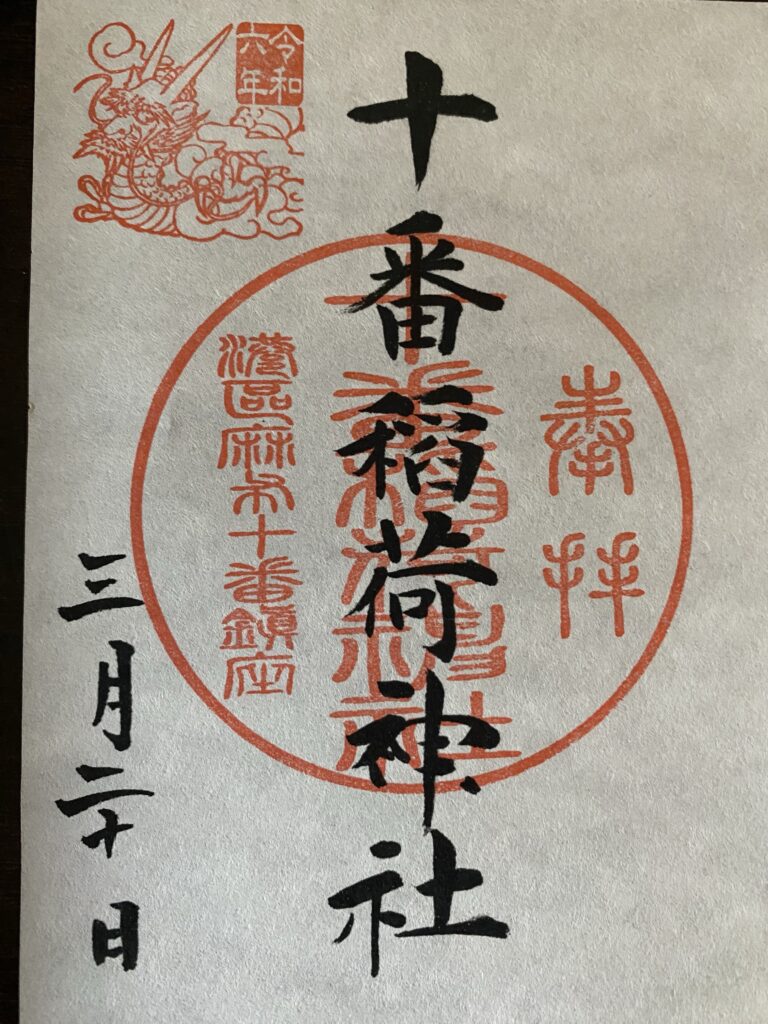 奉拝
十番稲荷神社
十番稲荷神社
港區麻布十番鎮座
令和
六年
三月二十日